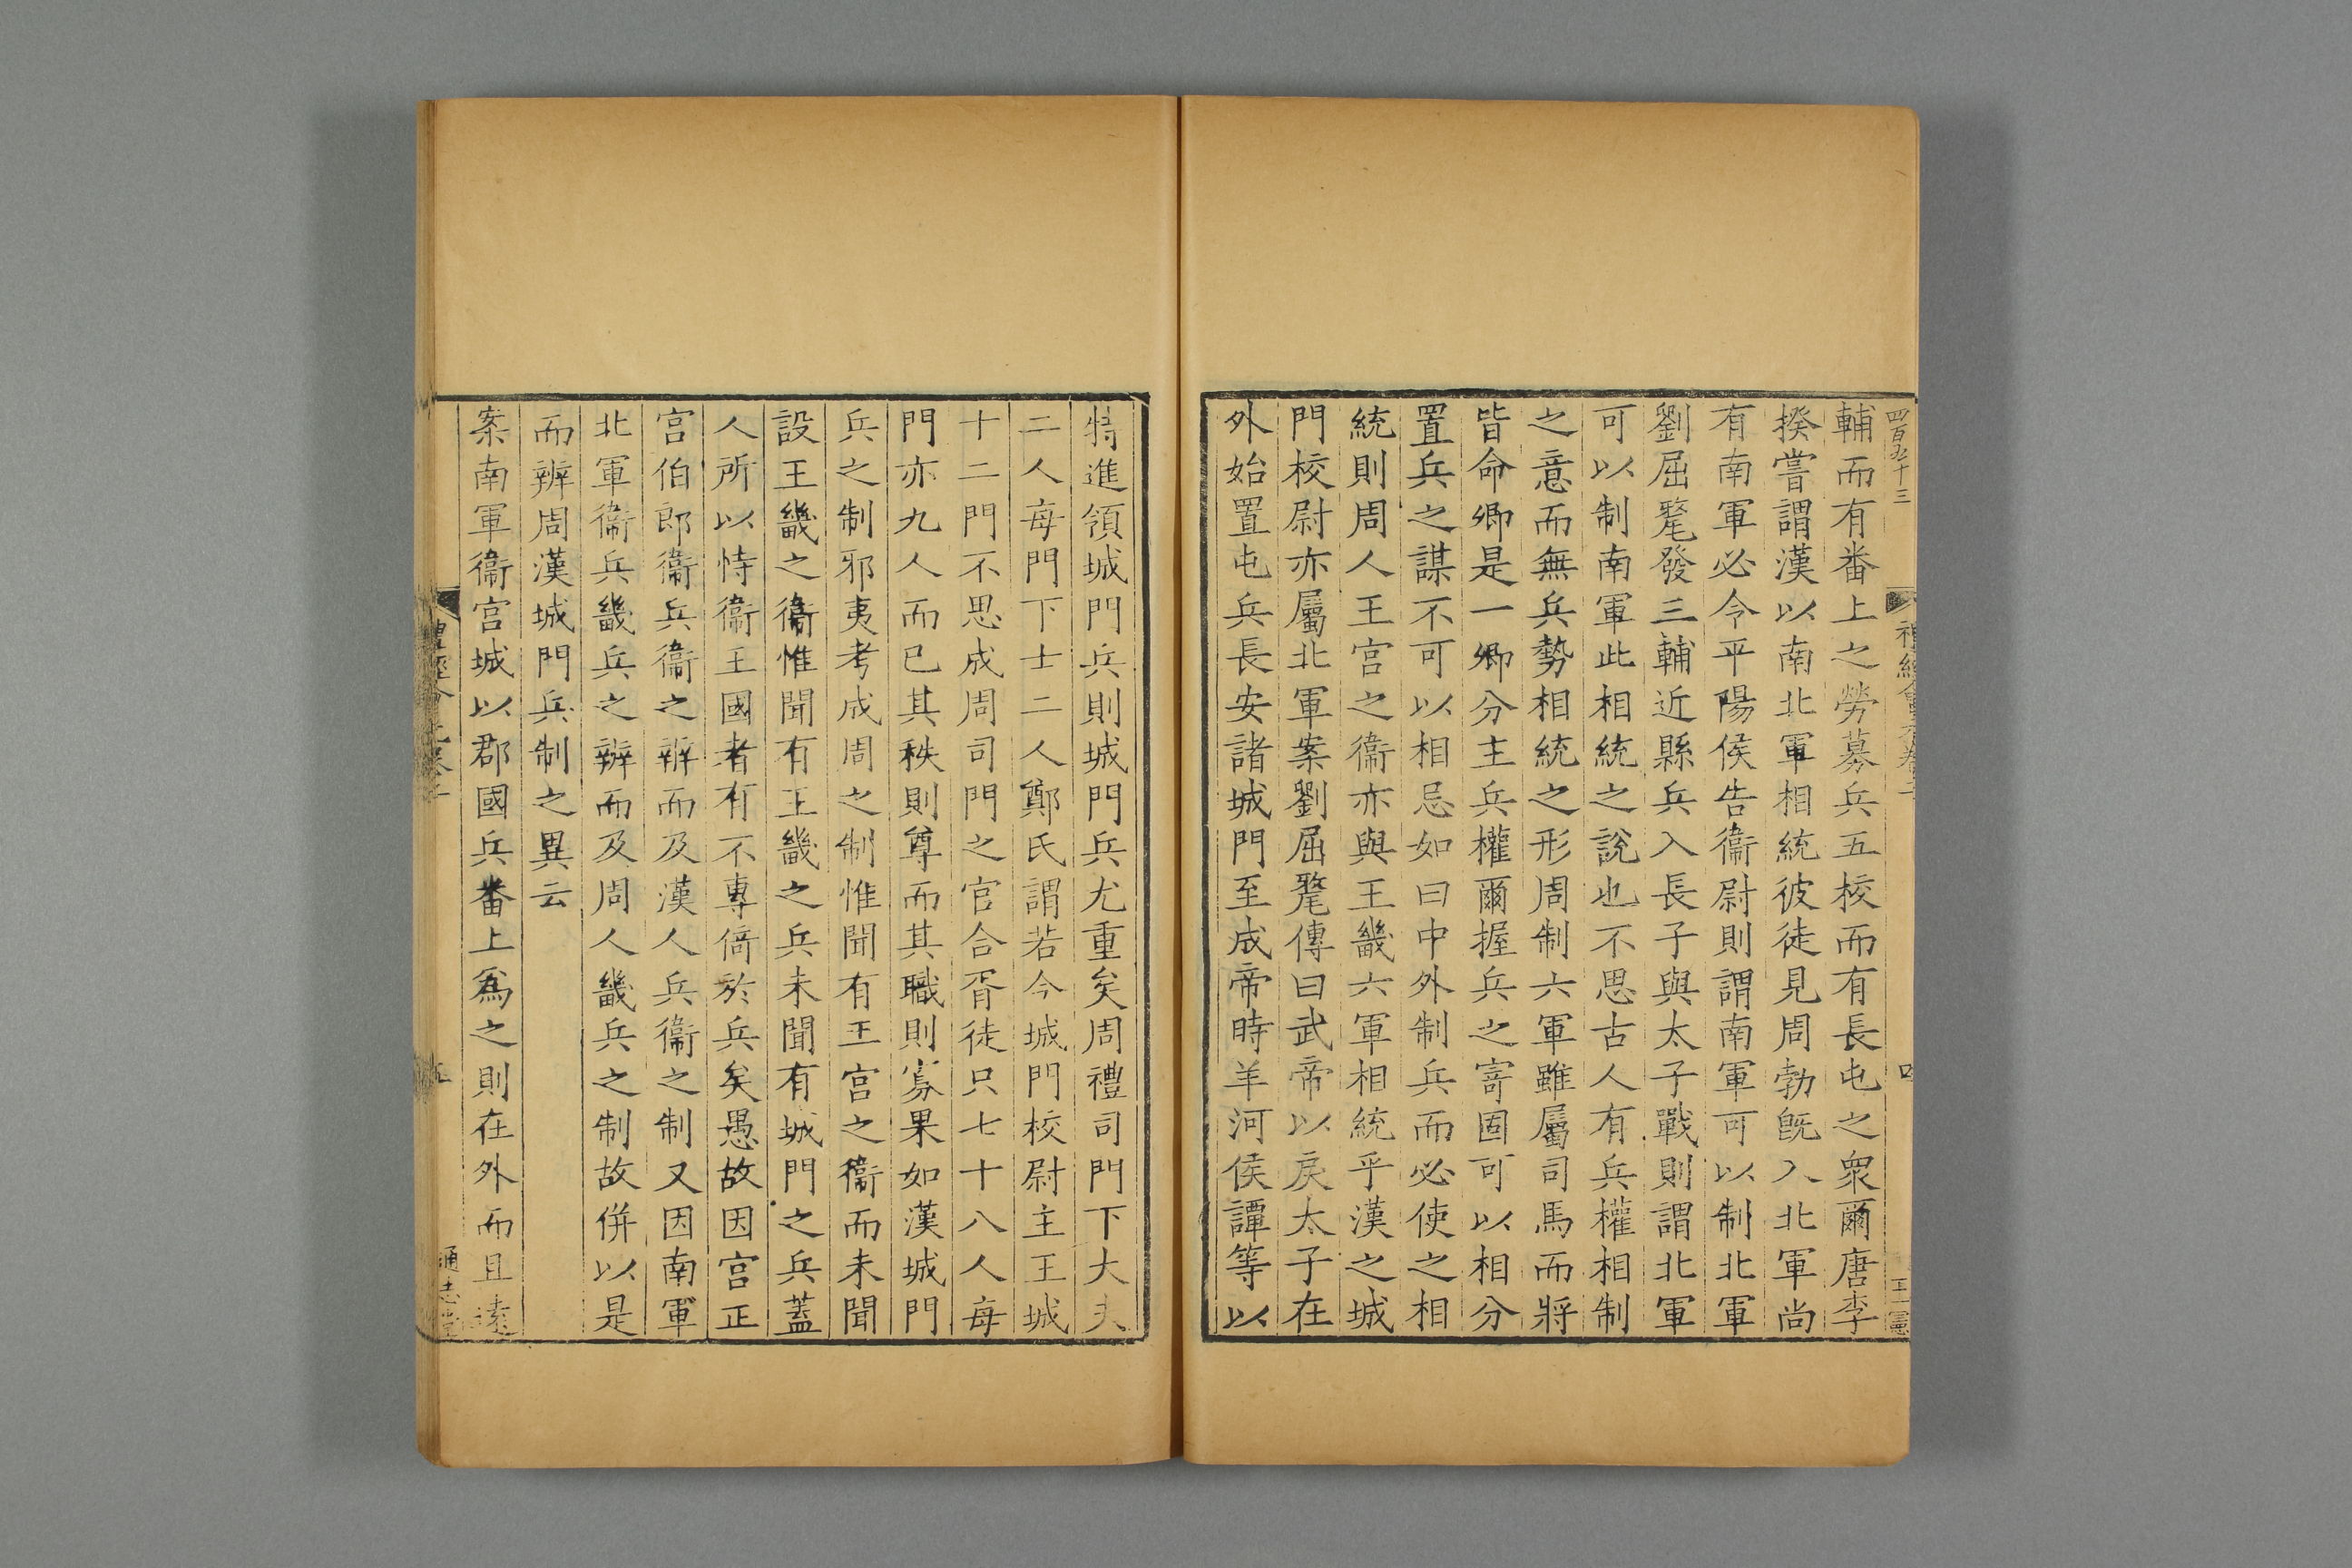 四百九十三
輔而有番上之勞募兵五校而有長屯之衆爾唐李
揆嘗謂漢以南北軍相統彼徒見周勃旣入北軍尚
有南軍必令平陽侯告衞尉則謂南軍可以制北軍
劉屈氂發三輔近縣兵入長子與太子戰則謂北軍
可以制南軍此相統之說也不思古人有兵權相制
之意而無兵勢相統之形周制六軍雖屬司馬而將
皆命卿是一卿分主兵權爾握兵之寄固可以相分
置兵之謀不可以相忌如曰中外制兵而必使之相
統則周人王宮之衞亦與王畿六軍相統乎漢之城
門校尉亦屬北軍案劉屈氂傳曰武帝以戾太子在
外始置屯兵長安諸城門至成帝時羊河侯譚等以
特進領城門兵則城門兵尤重矣周禮司門下大夫
二人每門下士二人鄭氏謂若今城門校尉主王城
十二門不思成周司門之官合胥徒只七十八人每
門亦九人而已其秩則尊而其職則寡果如漢城門
兵之制邪夷考成周之制惟聞有王宮之衞而未聞
設王畿之衞惟聞有王畿之兵未聞有城門之兵蓋
人所以恃衞王國者有不專倚於兵矣愚故因宮正
宮伯郎衞兵衞之辨而及漢人兵衞之制又因南軍
北軍衞兵畿兵之辨而及周人畿兵之制故併以是
而辨周漢城門兵制之異云
案南軍衞宮城以郡國兵番上爲之則在外而且遠
通志堂